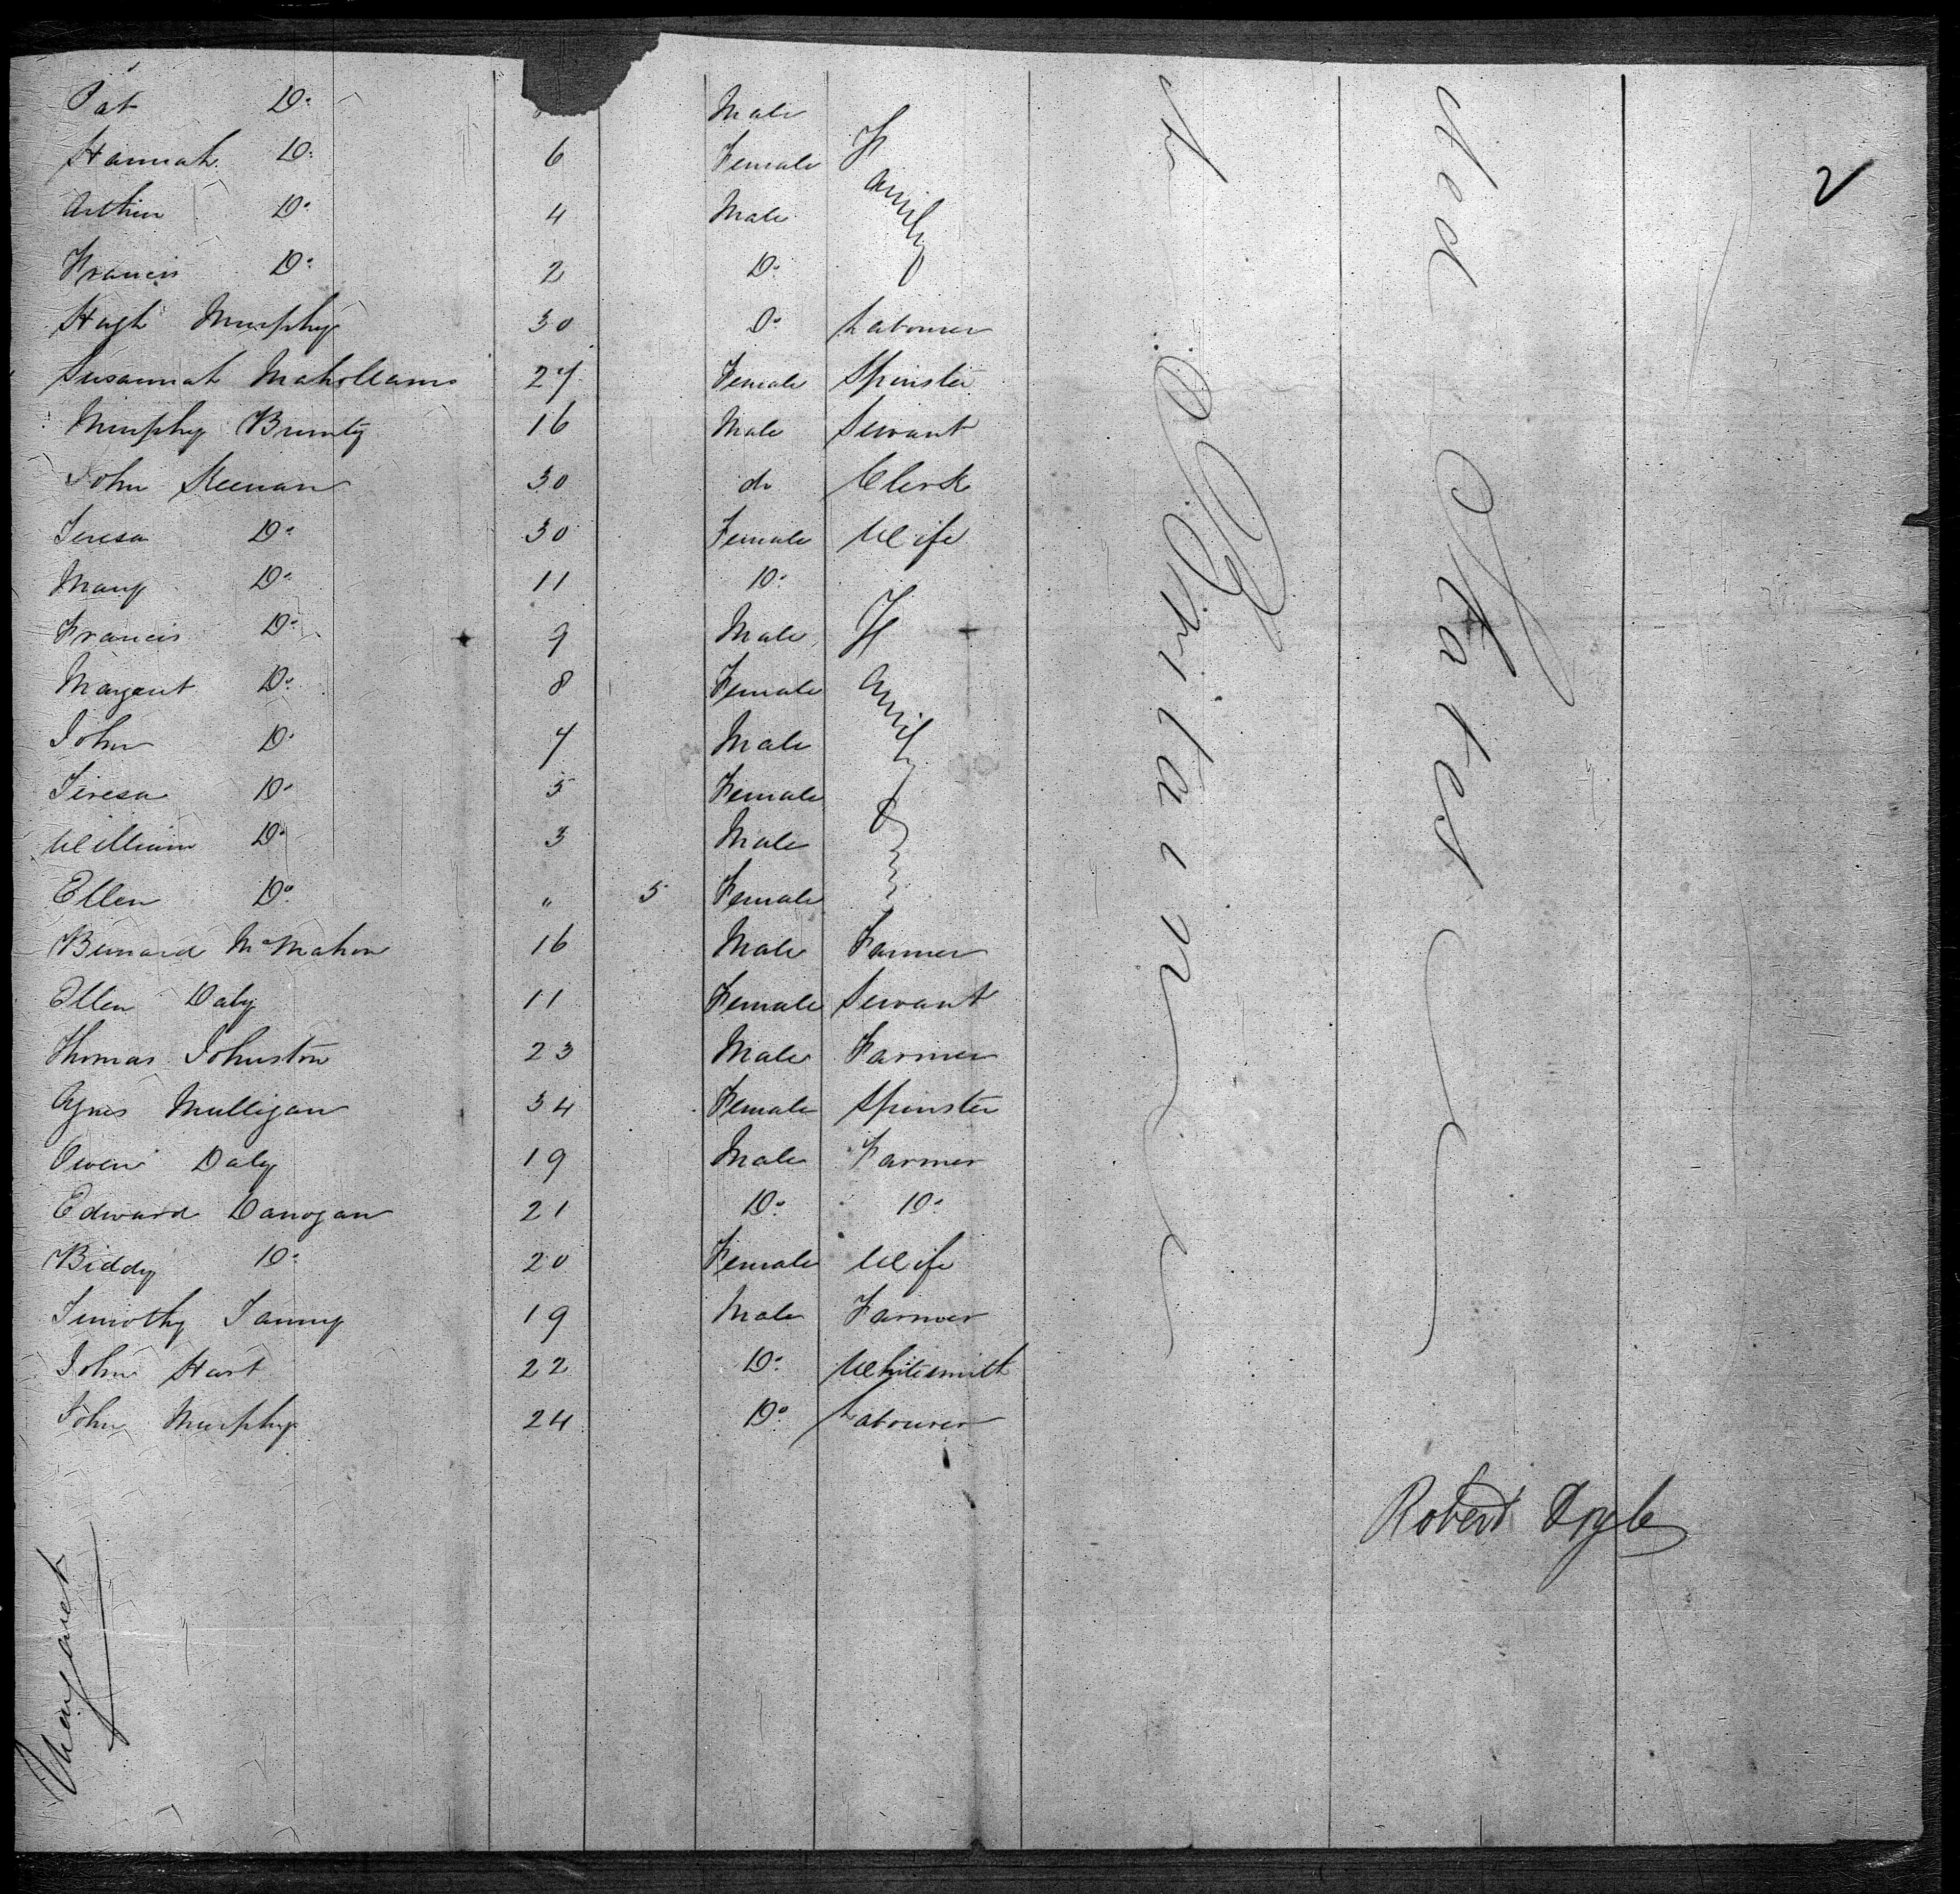 Pat Do. Male
Hannah Do. 6 Female
Arthur Do. 4 Male
Francis Do. 2 Do.
Family
Hugh Murphy 30 Do. Labourer
Susannah 27 Female Spinster
Murphy 16 Male Servant
John Keenan 30 do Clerk
Teresa Do. 30 Female Wife
Mary Do. 11 Do.
Francis Do. 9 Male
Margaret Do. 8 Female
John Do. 7 Male
Teresa Do. 5 Female
William Do. 3 Male
Ellen Do. " 5 Female
Family
Bernard McMahon 16 Male Farmer
Ellen Daly 11 Female Servant
Thomas Johnston 23 Male Farmer
Agnes Mulligan 34 Female Spinster
Owen Daly 19 Male Farmer
Edward Danogan 21 Do. Do.
Biddy Do. 20 Female Wife
Timothy 19 Male Farmer
John Hart 22 Do. Whitesmith
John Murphy 24 Do. Labourer
Britain
ted States
2
Robert
Margaret